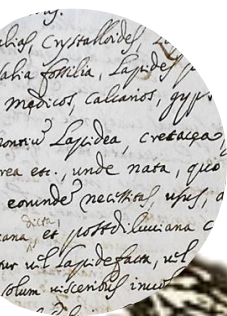 alias, Crystalloides,
talia fossilia, Lapides
medicos, calcarios, gyps
montiū Lapidea, cretacea
rea etc., unde nata, quo
eorunde necessitas, usus, a
dicta,
et postdiluviana c
tur vel Lapidefacta, vel
solum visceribus